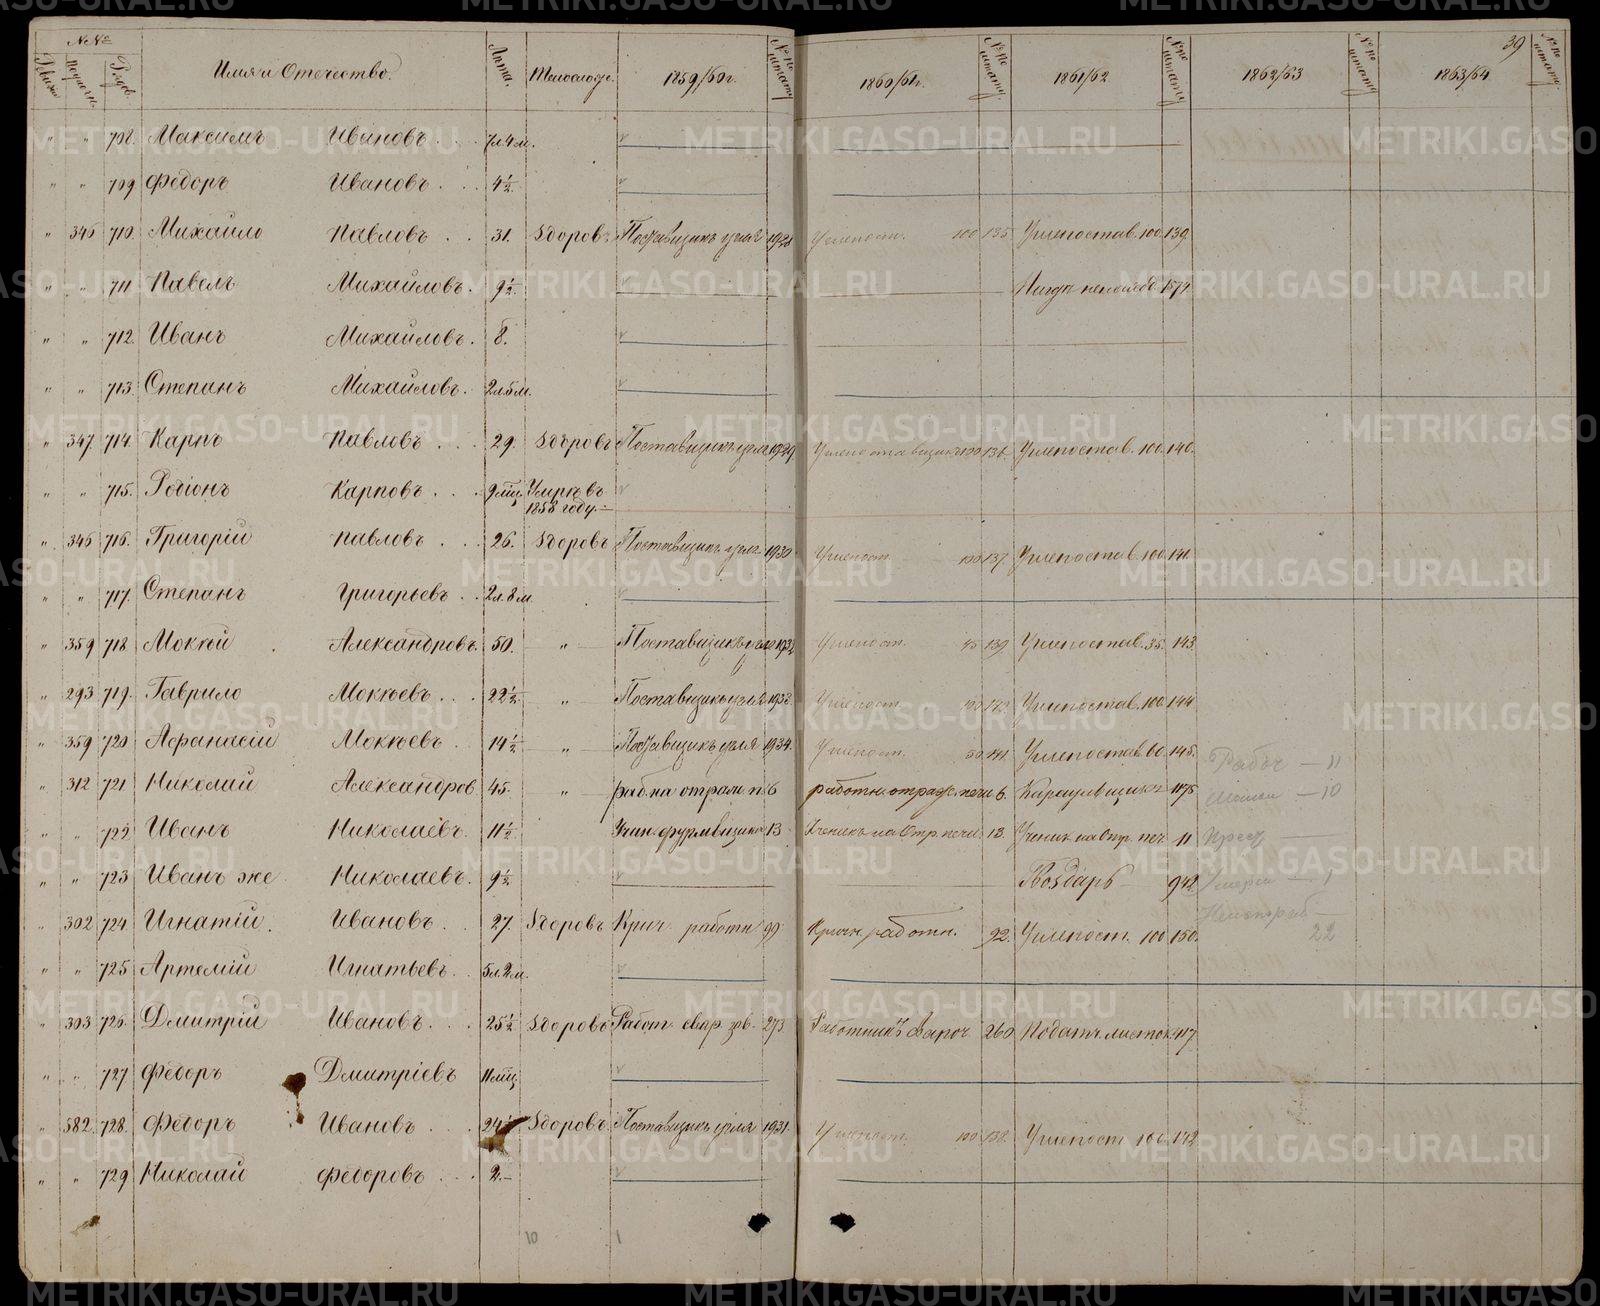 39
№№
Имя и Отечество. Лета. Телослож. 1859/60 г. № по штату 1860/61 г. № по штату 1861/62 № по штату 1862/63 № по штату 1863/64 № по штату
" " 708. Максимъ Ивановъ . . 7 л 4 м.
" " 709 Ѳедоръ Ивановъ . . . 4 1/2.
" 345 710. Михайло Павловъ . . 31. Здоровъ Поставщикъ угля 1928 Углепост. 100 135 Углепостав. 100. 139.
" " 711 Павелъ Михайловъ. 9 1/2. 1579
" " 712. Иванъ Михайловъ. 8.
" " 713. Степанъ Михайловъ. 2 л 5 м.
" 347. 714 Карпъ Павловъ . . . 29. Здоровъ Поставщикъ угля 1929 Углепоставщикъ 100 136. Углепостав. 100. 140.
" " 715. Родіонъ Карповъ . . . 9 мц. Умръ въ
1858 году.
" 346 716. Григорій Павловъ . . . 26. Здоровъ Поставщикъ угля 1930 Углепост. 100 137. Углепостав. 100. 141.
" " 717. Степанъ Григорьевъ . . 2 л. 8 м
" 359 718 Мокѣй Александровъ. 50. " Поставщикъ угля 1932 Углепост. 45 139. Углепостав. 35. 143.
" 293 719. Гаврило Мокѣевъ . . . 22 1/2. " Поставщикъ угля 1933. Углепост. 100 142. Углепостав. 100. 144
" 359 720 Афанасій Мокѣевъ . 14 1/2 " Поставщикъ угля 1934. Углепост. 50 141. Углепостав. 60. 145.
Рабоч — 11
" 312 721 Николай Александров 45. " раб. на отраж. п. 6 работн. отраж. печи 6. Караульщикъ 1175
— 10
" " 722 Иванъ Николаевъ. 11 1/2. Учен. фурмовщика 13 Ученикъ на Отр печи 13. Ученик на Отр. печ. 11
" " 723 Иванъ же Николаевъ. 9 1/2. Гвоздарь 942
" 302 724 Игнатій. Ивановъ . 27. Здоровъ Крич. работн 99 Кричн. работн. 92. Углепост. 100 150.
22
" " 725 Артемій Игнатьевъ . . 5 л 2 м.
" 303 726. Дмитрій Ивановъ . . . 25 1/2. Здоровъ Работ. свар. зав. 273 Работникъ Свароч 260 Подат. листок. 417
" " 727 Ѳедоръ Дмитріевъ 11 мц
" 582 728. Ѳедоръ Ивановъ . . . 24 1/2. Здоровъ Поставщикъ угля 1931. Углепост. 100 138. Углепост 100. 142
" " 729 Николай Ѳедоровъ . . . 2.
10 1
METRIKI.GASO-URAL.RU